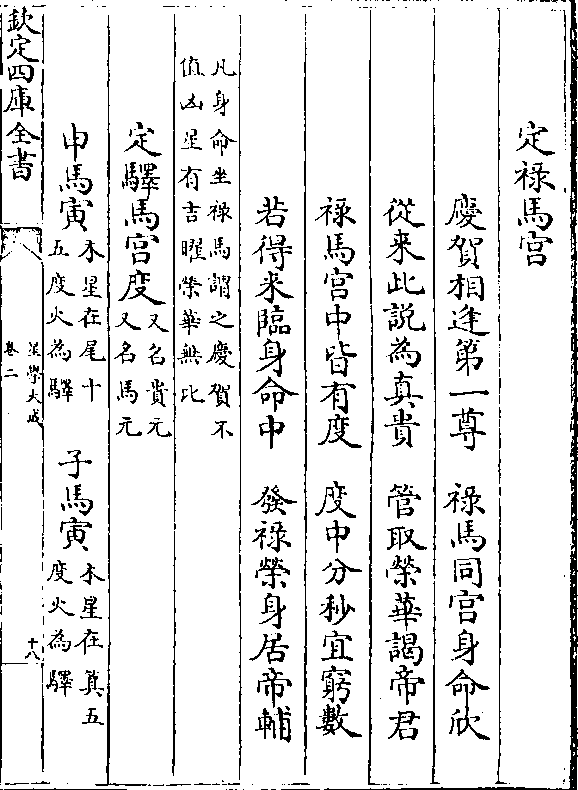 定禄馬宫
慶賀相逢第一尊 禄馬同宫身命欣
從來此説為真貴 管取榮華謁帝君
禄馬宫中皆有度 度中分秒宜窮數
若得来臨身命中 發禄榮身居帝輔
凡身命坐禄馬謂之慶賀不
值凶星有吉曜榮華無比
定驛馬宫度又名貴元
又名馬元
申馬寅木星在尾十
五度火為驛
子馬寅木星在箕五
度火為驛
欽定四庫全書
星學大成
卷二
十八